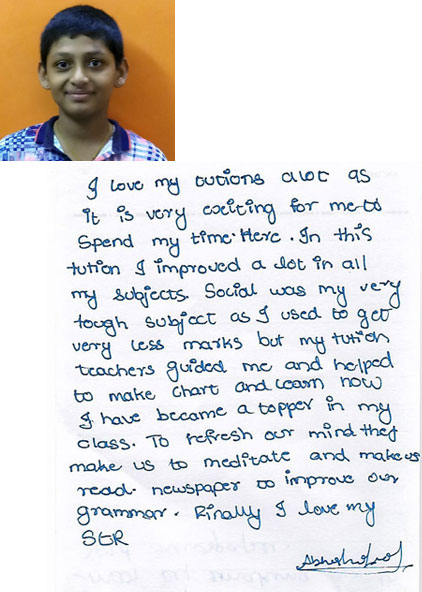 I love my tutions alot as
it is very exiting for me to
spend my time Here. In this
tution I improved a lot in all
my subjects. Social was my very
tough subject as I used to get
very less marks but my tution
teachers guided me and helped
to make chart and learn now
I have became a topper in my
class. To refresh our mind they
make us to meditate and make us
read newspaper to improve our
grammar. Finally I love my